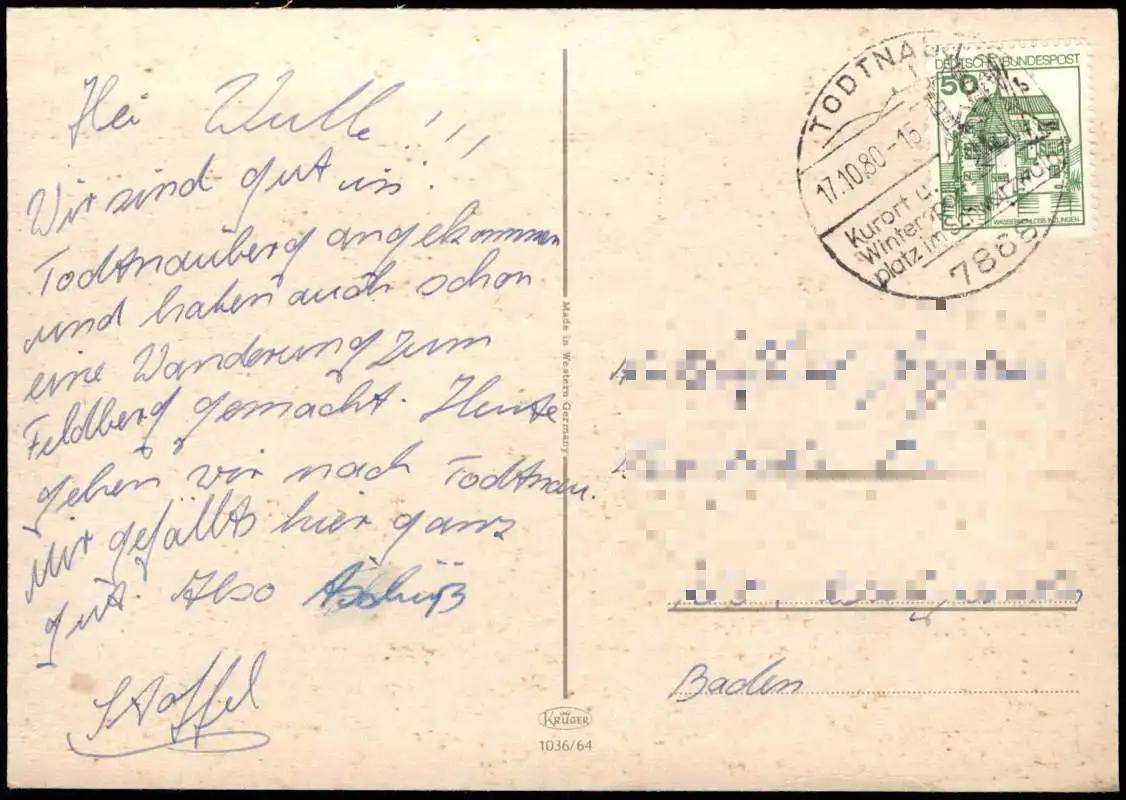 Hei Wulle!!!
Wir sind gut in
Todtnauberg angekommen
und haben auch schon
eine Wanderung zum
Feldberg gemacht. Heute
gehen wir nach Todtnau.
Mir gefällts hier ganz
gut. Also Tschüß
Staffel
Made in Western Germany
KRÜGER
1036/64
TODTNAU
17.10.80-15
Kurort u.
Winterspor
platz im Schwarzwald
7868
DEUTSCHE BUNDESPOST
50
WASSERSCHLOSS INZLINGEN
Baden